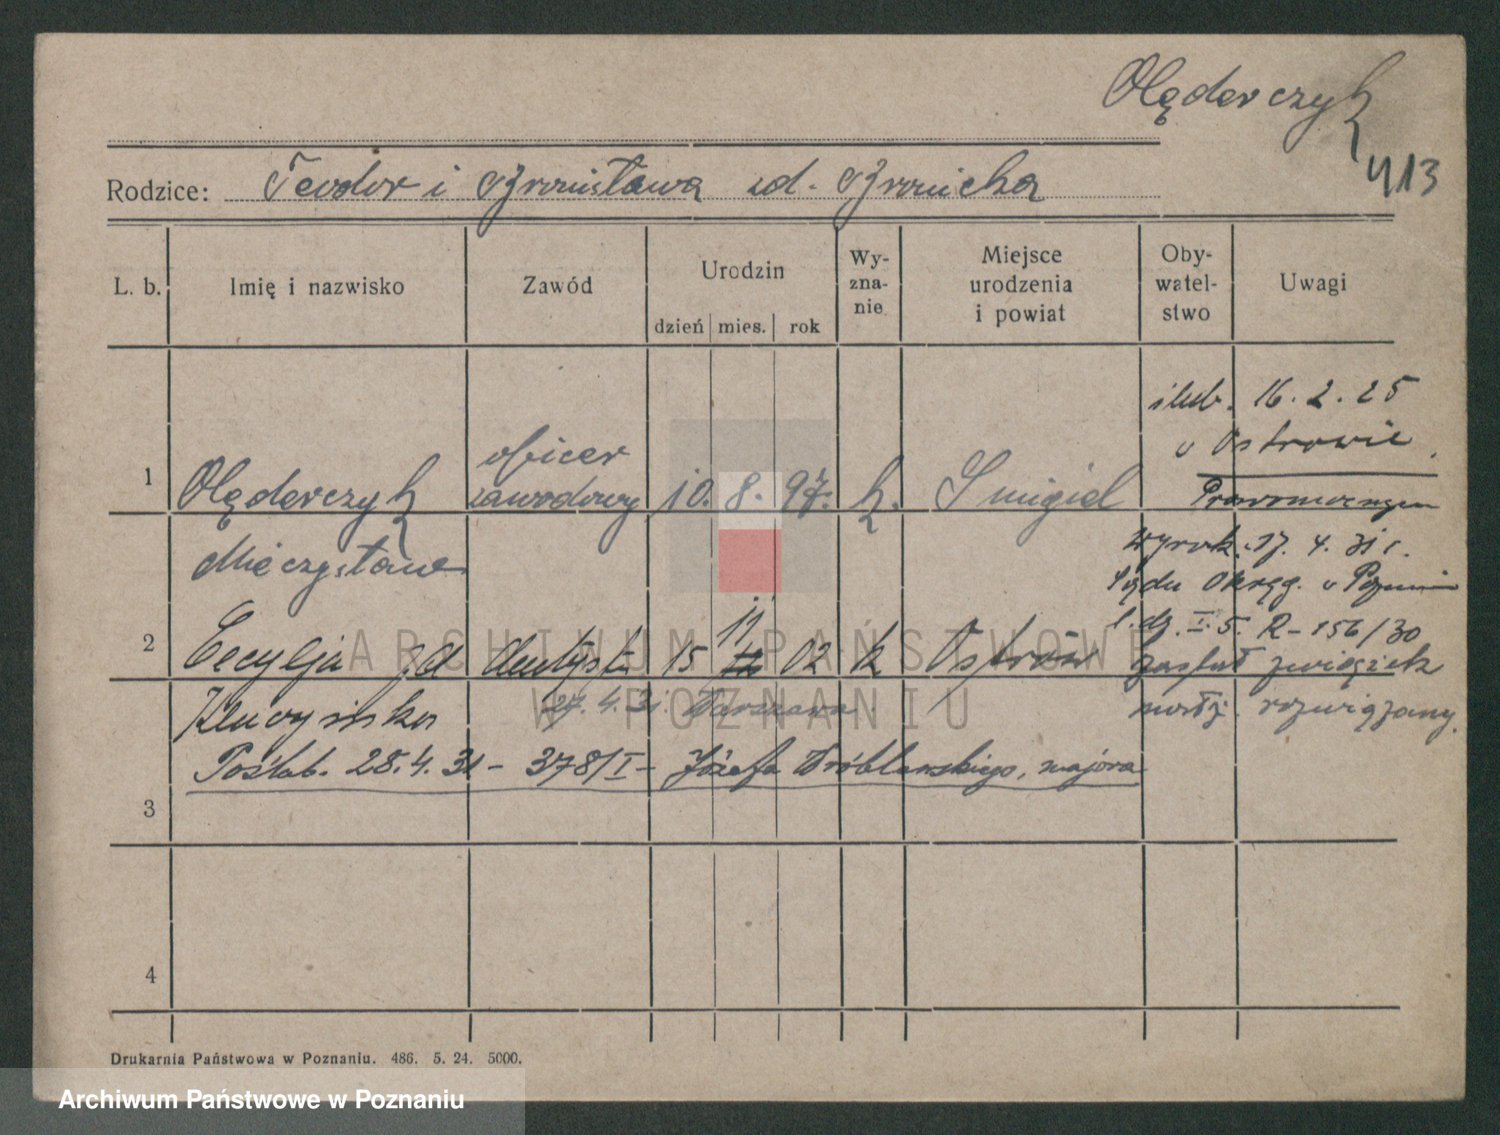 Olęderczyk
413
Rodzice: Teodor i Bronisława zd. Bronicka
L. b. Imię i nazwisko Zawód Urodzin Wy-zna-nie Miejsce urodzenia i powiat Oby-watel-stwo Uwagi
dzień mies. rok
ślub. 16.2.25
w Ostrowie.
1 Olęderczyk oficer zawodowy 10. 8. 97. k. Śmigiel
Mieczysław
Prawomocnym
wyrok. 17. 4. 31 r.
Sądu Okręg. w
l. dz. I. 5. R-156/30
został związek
rozwiązany.
2 Cecylja zd dentyst. 15 11 02 k Ostrów
27.4.31. Warszawa
Poślub. 28.4.31 - 378/I - Józefa Wróblewskiego, majora
3
4
Drukarnia Państwowa w Poznaniu. 486. 5. 24. 5000.
ARCHIWUM PAŃSTWOWE
W POZNANIU
Archiwum Państwowe w Poznaniu